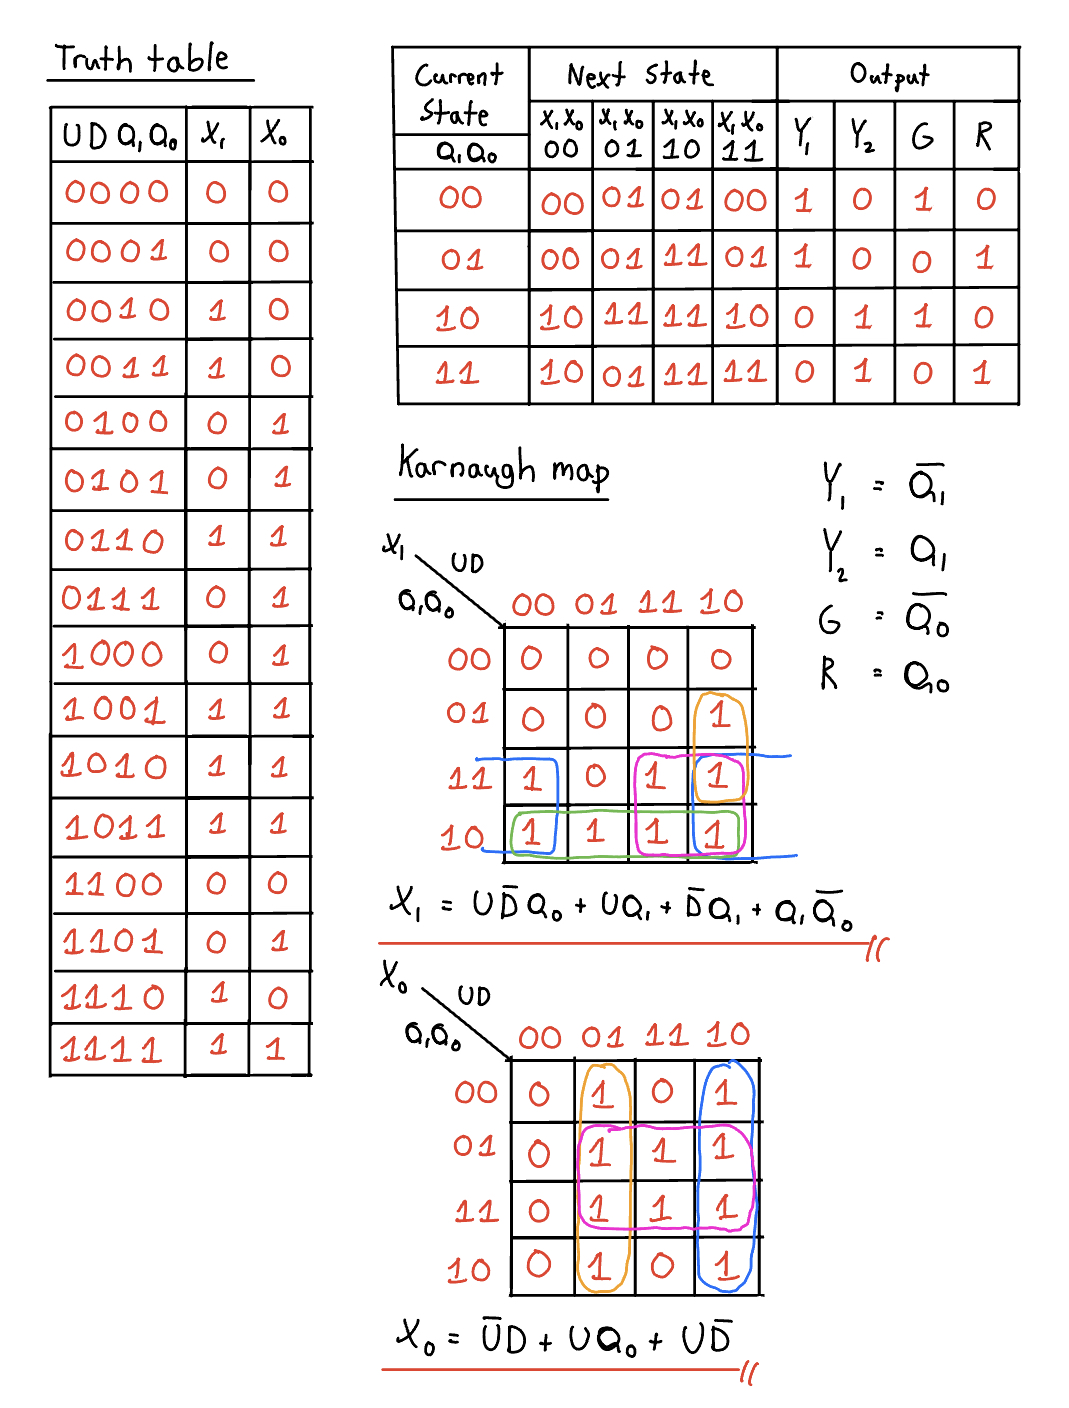 Truth table
U D Q₁ Q₀ X₁ X₀
0000 0 0
0001 0 0
0010 1 0
0011 1 0
0100 0 1
0101 0 1
0110 1 1
0111 0 1
1000 0 1
1001 1 1
1010 1 1
1011 1 1
1100 0 0
1101 0 1
1110 1 0
1111 1 1
Current State Next State Output
Q₁Q₀ X₁X₀ 00 X₁X₀ 01 X₁X₀ 10 X₁X₀ 11 Y₁ Y₂ G R
00 00 01 01 00 1 0 1 0
01 00 01 11 01 1 0 0 1
10 10 11 11 10 0 1 1 0
11 10 01 11 11 0 1 0 1
Karnaugh map
Y₁ = Q̅₁
Y₂ = Q₁
G = Q̅₀
R = Q₀
X₁ UD
Q₁Q₀ 00 01 11 10
00 0 0 0 0
01 0 0 0 1
11 1 0 1 1
10 1 1 1 1
X₁ = UD̅Q₀ + UQ₁ + D̅Q₁ + Q₁Q̅₀
X₀ UD
Q₁Q₀ 00 01 11 10
00 0 1 0 1
01 0 1 1 1
11 0 1 1 1
10 0 1 0 1
X₀ = U̅D + UQ₀ + UD̅